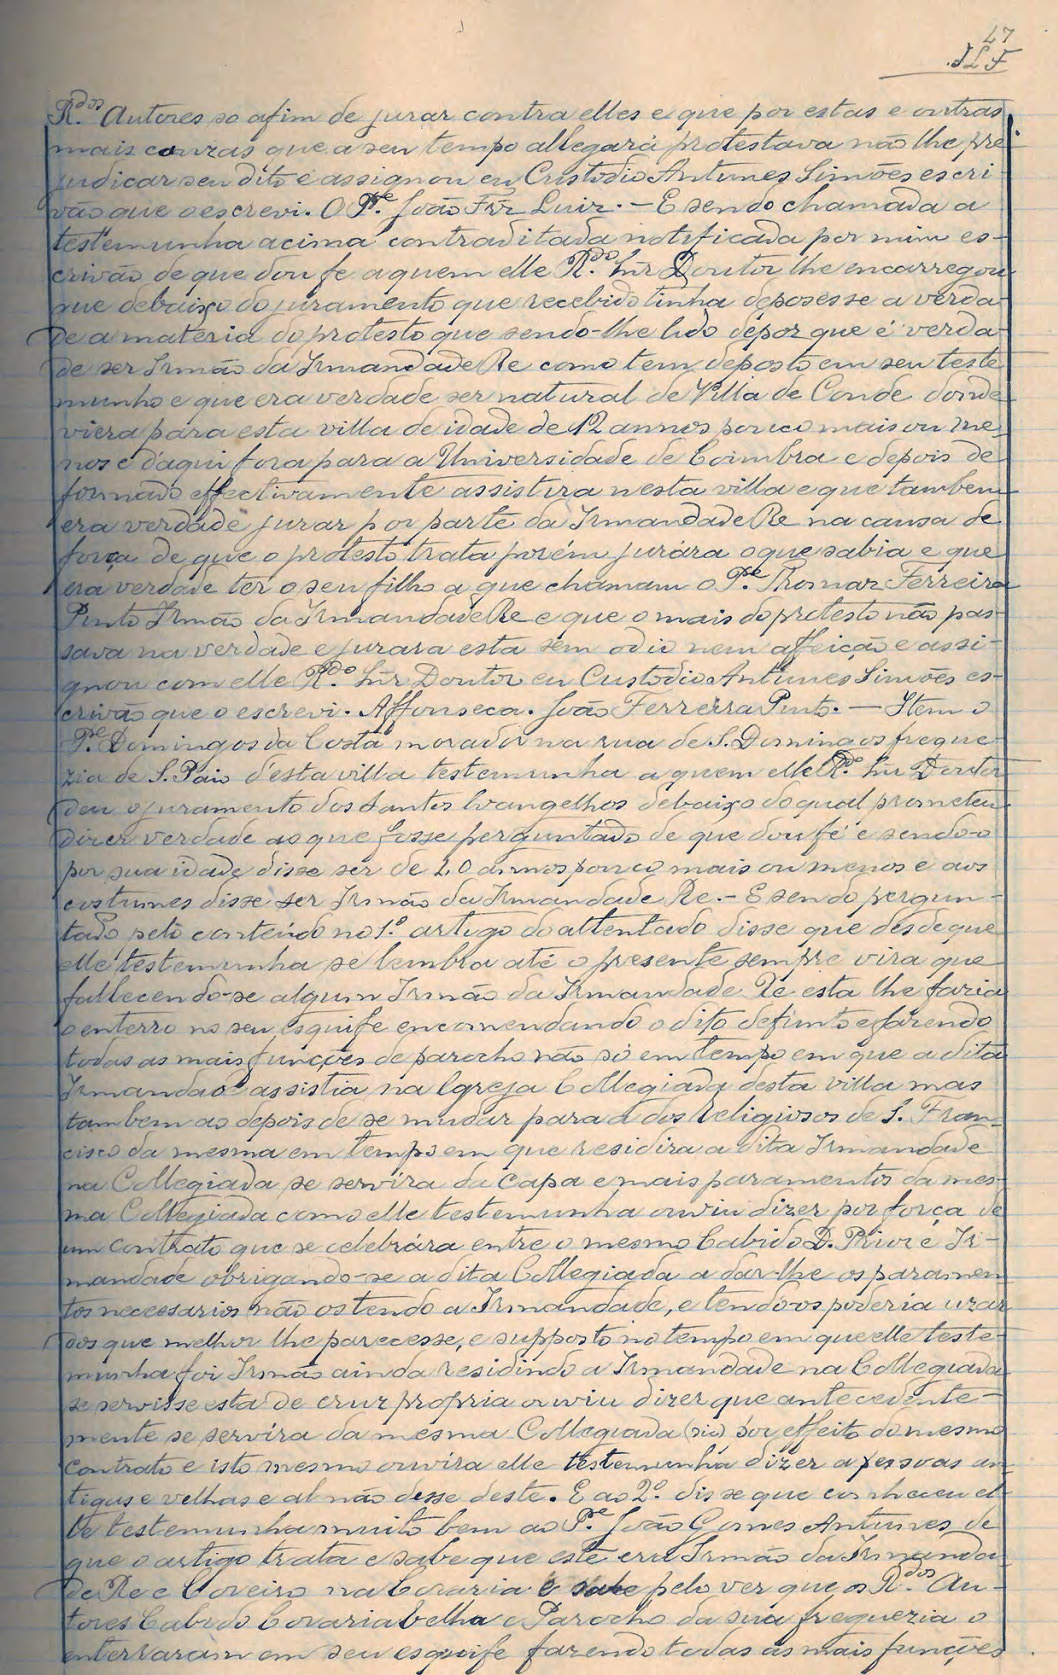 47
JLF
R.dos Autores so afim de jurar contra elles e que por estas e outras
mais couzas que a seu tempo allegará protestava não lhe pre
judicar seu dito e assignou eu Custodio Antunes Simões escri
vão que o escrevi. O P.e João Frz Luiz. — E sendo chamada a
testemunha acima contraditada notificada por mim es-
crivão de que dou fe a quem elle R.do Snr Doutor lhe encarregou
que debaixo do juramento que recebido tinha deposesse a verda-
de a materia do protesto que sendo-lhe lido depoz que é verda-
de ser Irmão da Irmandade Re como tem deposto em seu teste
munho e que era verdade ser natural de Villa de Conde donde
viera para esta villa de idade de 12 annos pouco mais ou me-
nos e d'aqui fora para a Universidade de Coimbra e depois de
formado effectivamente assistira nesta villa e que tambem
era verdade jurar por parte da Irmandade Re na causa de
força de que o protesto trata porém jurára o que sabia e que
era verdade ter o seu filho a que chamam o P.e Thomaz Ferreira
Pinto Irmão da Irmandade Re e que o mais do protesto não pas-
sava na verdade e jurara esta sem odio nem affeição e assi-
gnou com elle R.do Snr Doutor eu Custodio Antunes Simões es-
crivão que o escrevi. Affonseca. João Ferreira Pinto. — Item o
P.e Domingos da Costa morador na rua de S. Domingos fregue-
zia de S. Paio d'esta villa testemunha a quem elle R.do Snr Doutor
deu o juramento dos Santos Evangelhos debaixo do qual prometeu
dizer verdade ao que fosse perguntado de que dou fé e sendo-o
por sua idade disse ser de 40 annos pouco mais ou menos e aos
costumes disse ser Irmão da Irmandade Re. — E sendo pergun-
tado pelo conteúdo no 1.º artigo do attentado disse que desde que
elle testemunha se lembra até o presente sempre vira que
fallecendo-se algum Irmão da Irmandade Re esta lhe faria
o enterro no seu esquife encomendando o dito defunto e fazendo
todas as mais funções de parocho não só em tempo em que a dita
Irmandade assistia na Egreja Collegiada desta villa mas
tambem ao depois de se mudar para a dos religiosos de S. Fran-
cisco da mesma em tempo em que residira a dita Irmandade
na Collegiada se servira da capa e mais paramentos da mes-
ma Collegiada como elle testemunha ouviu dizer por força de
um contrato que se celebrára entre o mesmo Cabido D. Prior e Ir-
mandade obrigando-se a dita Collegiada a dar-lhe os paramen
tos necessarios não os tendo a Irmandade, e tendo-os poderia uzar
dos que melhor lhe parecesse, e supposto no tempo em que elle teste-
munha foi Irmão ainda residindo a Irmandade na Collegiada
se servisse esta de cruz propria ouviu dizer que antecedente-
mente se servira da mesma Collegiada (sic) por effeito do mesmo
contrato e isto mesmo ouvira elle testemunha dizer a pessoas an-
tigas e velhas e al não desse deste. E ao 2.º disse que conheceu el-
le testemunha muito bem ao P.e João Gomes Antunes de
que o artigo trata e sabe que este era Irmão da Irmanda-
de Re e Coreiro na Coraria e sabe pelo ver que os R.dos Au-
tores Cabido Coraria belha e Parocho da sua freguezia o
enterraram em seu esquife fazendo todas as mais funções